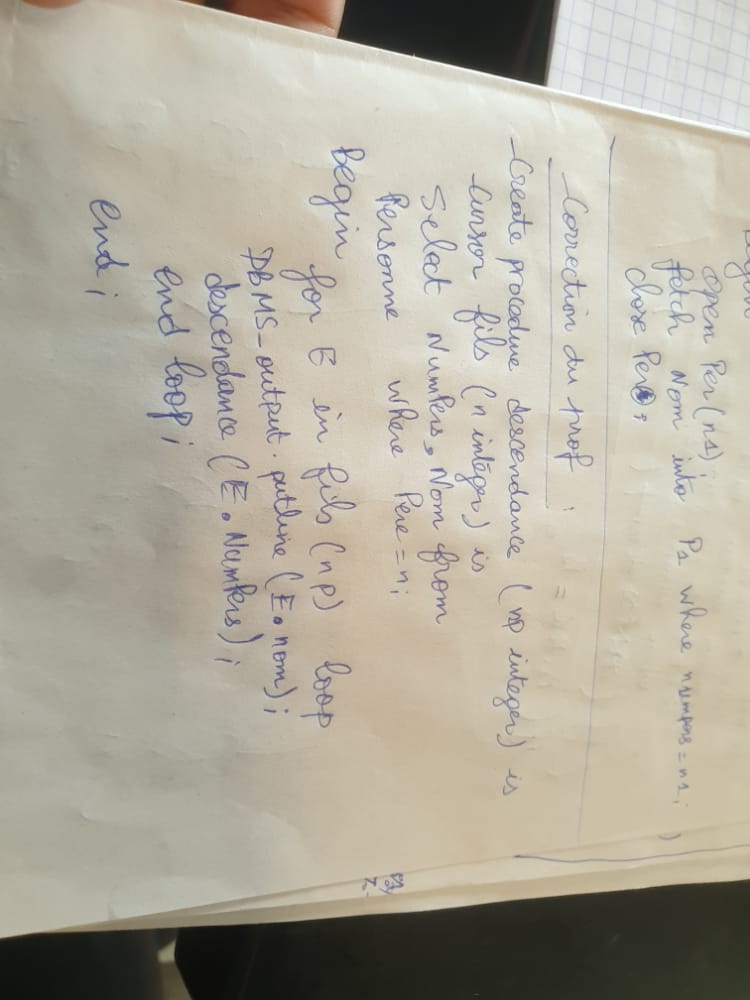 open Per(n1);
fetch Nom into P1 where numpers = n1;
close Per;
Correction du prof :
Create procedure descendance (np integer) is
Cursor fils (n integer) is
Select Numpers, Nom from
Personne where Pere = n;
Begin
for E in fils (np) loop
DBMS_output.putline (E.nom);
descendance (E.Numpers);
end loop;
end;